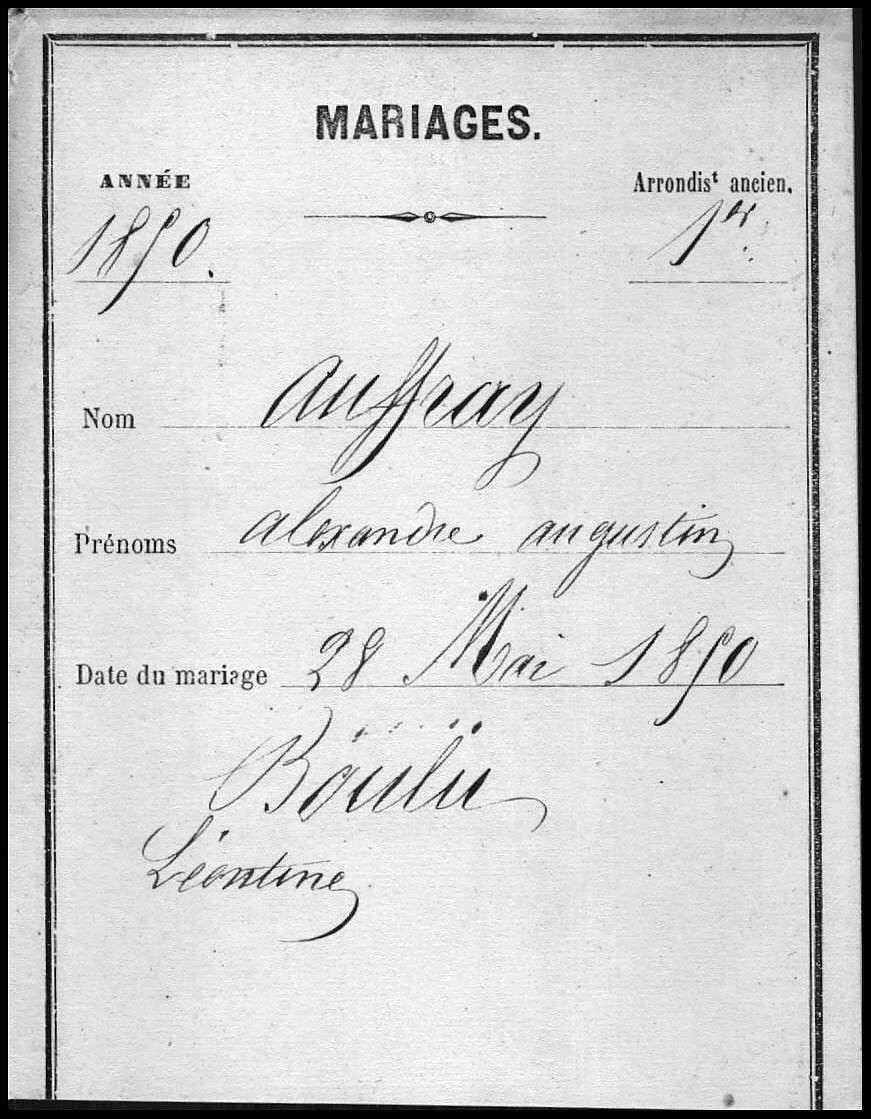 MARIAGES.
ANNÉE
Arrondis^t ancien.
1850.
1^er
Nom Auffray
Prénoms alexandre augustin
Date du mariage 28 Mai 1850
Léontine